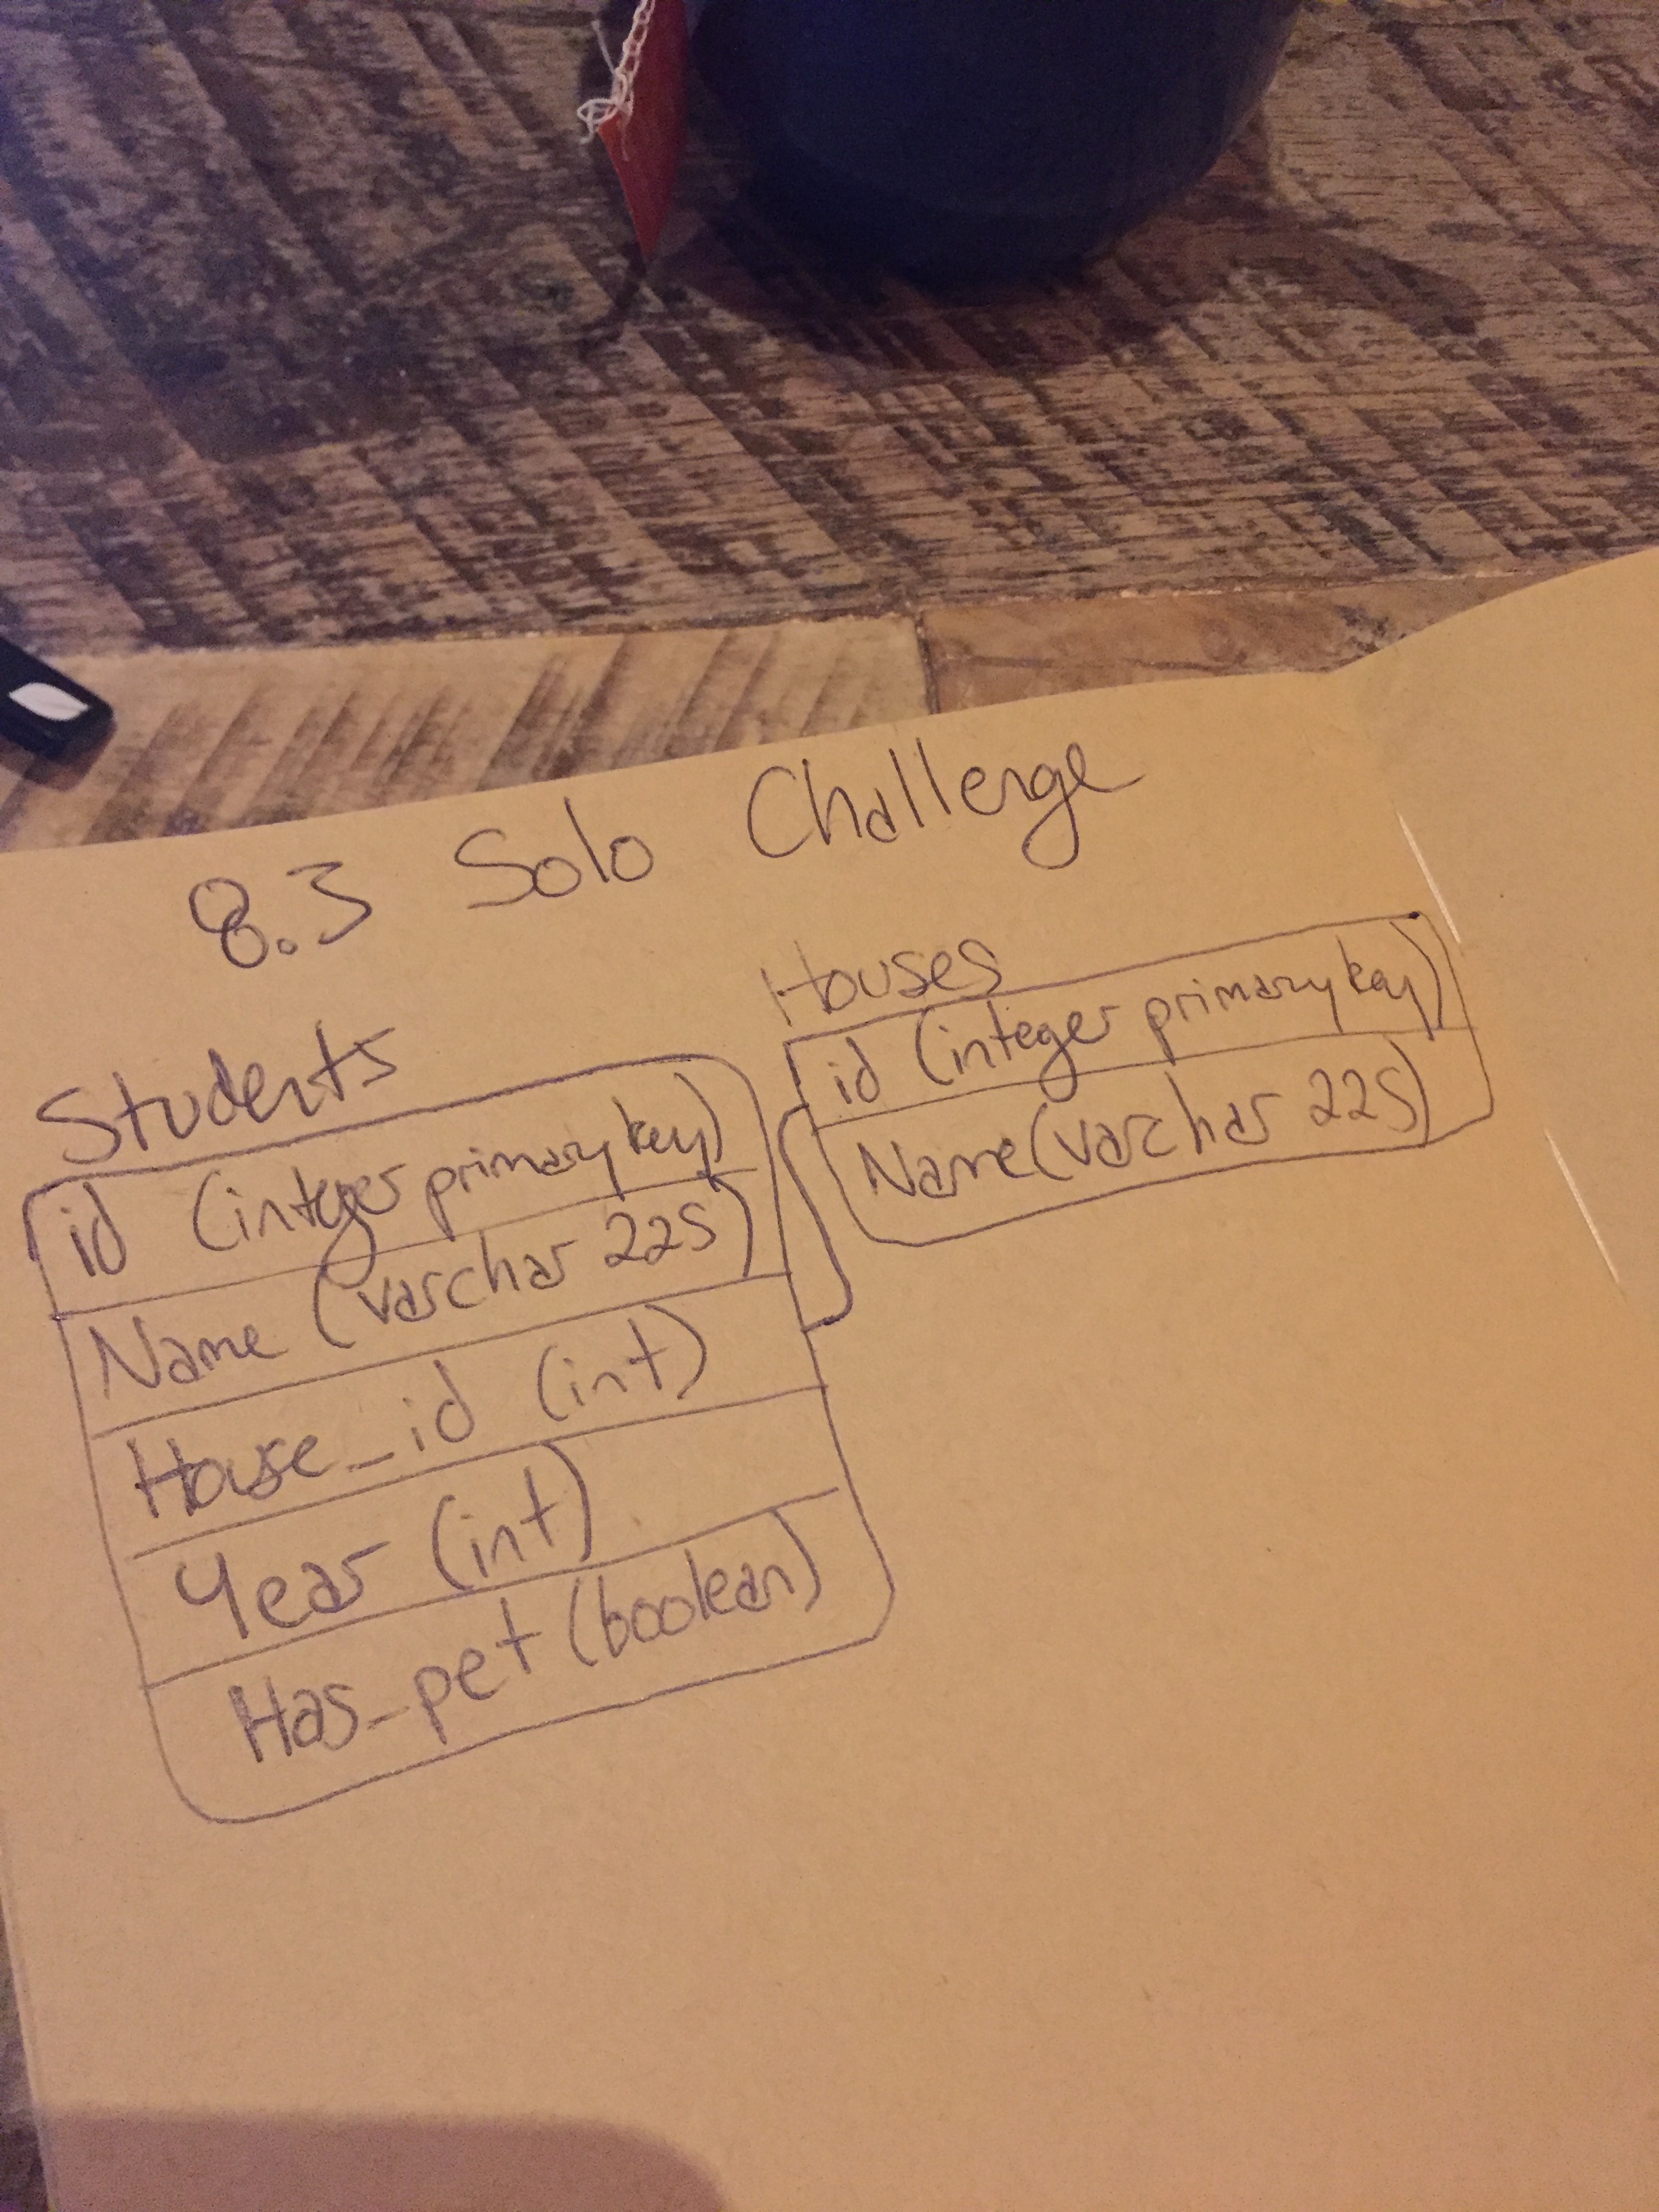 8.3 Solo Challenge
Students
id (integer primary key)
Name (varchar 225)
House_id (int)
Year (int)
Has_pet (boolean)
Houses
id (integer primary key)
Name (varchar 225)